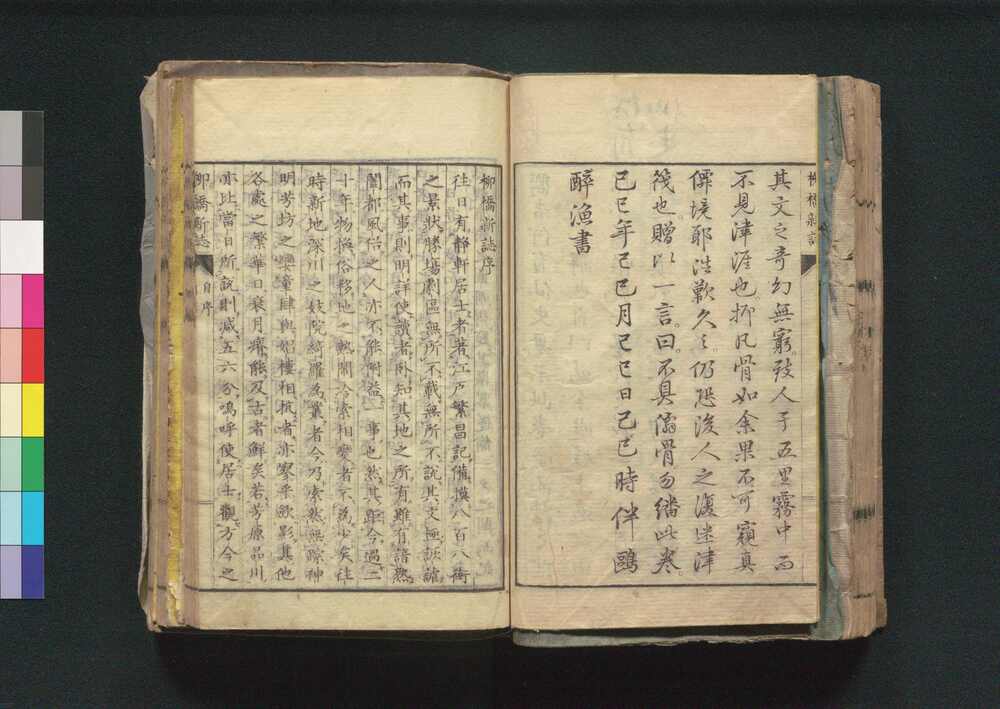 其文之奇幻無窮致人于五里霧中而
不見津涯也抑凡骨如余果不可窺真
僊境耶浩歎久之仍恐後人之復迷津
筏也贈以一言曰不具僊骨勿繙此卷
己巳年己巳月己巳日己巳時伴鷗
醉漁書
柳橋新誌序
往日有靜軒居士者著江戸繁昌記備摸八百八街
之景狀勝場劇區無所不載無所不說其文極詼謔
而其事則明詳使讀者臥知其地之所有雖有諳熟
闔都風俗之人亦不能附益一事也然其距今過二
十年物換俗移地之熱鬧冷索相變者不為少矣往
時新地深川之妓院綺羅為叢者今乃索然無踪神
明芳坊之孌童肆與娼樓相抗者亦寥乎歛影其他
各處之繁華日衰月瘠能及古者鮮矣若芳原品川
亦比當日所說則減五六分嗚呼使居士觀方今之
柳橋新志
自序